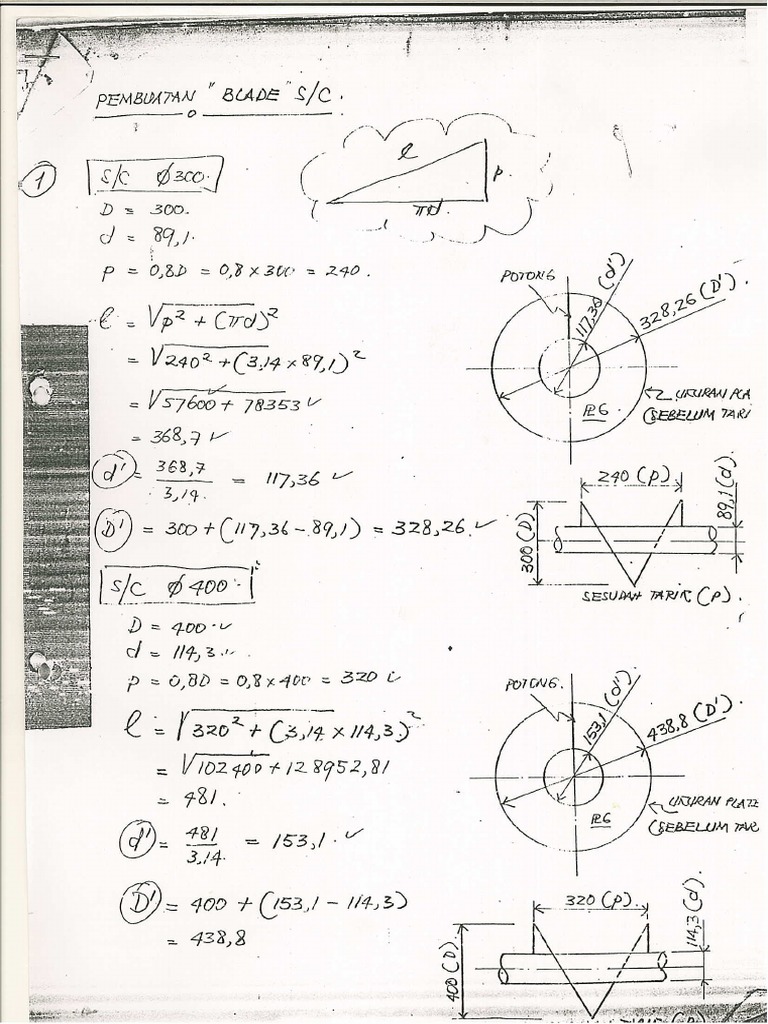 PEMBUATAN "BLADE" S/C.
1
S/C Ø300.
D = 300.
d = 89,1.
p = 0,8D = 0,8 x 300 = 240.
l
p.
πd.
l = √p² + (πd)²
= √240² + (3,14 x 89,1)²
= √57600 + 78353 ✓
= 368,7 ✓
d' = 368,7 / 3,14. = 117,36 ✓
D' = 300 + (117,36 - 89,1) = 328,26. ✓
POTONG
117,36 (d')
328,26 (D').
PL6.
UKURAN PLA
(SEBELUM TARI
240 (p)
89,1 (d).
300 (D)
SESUDAH TARIK (P).
S/C Ø400.
D = 400. ✓
d = 114,3.
p = 0,8D = 0,8 x 400 = 320
l = √320² + (3,14 x 114,3)²
= √102400 + 128952,81
= 481.
d' = 481 / 3,14. = 153,1. ✓
D' = 400 + (153,1 - 114,3)
= 438,8
POTONG.
153,1 (d')
438,8 (D').
PL6
UKURAN PLATE
(SEBELUM TAR
320 (p).
114,3 (d).
400 (D).